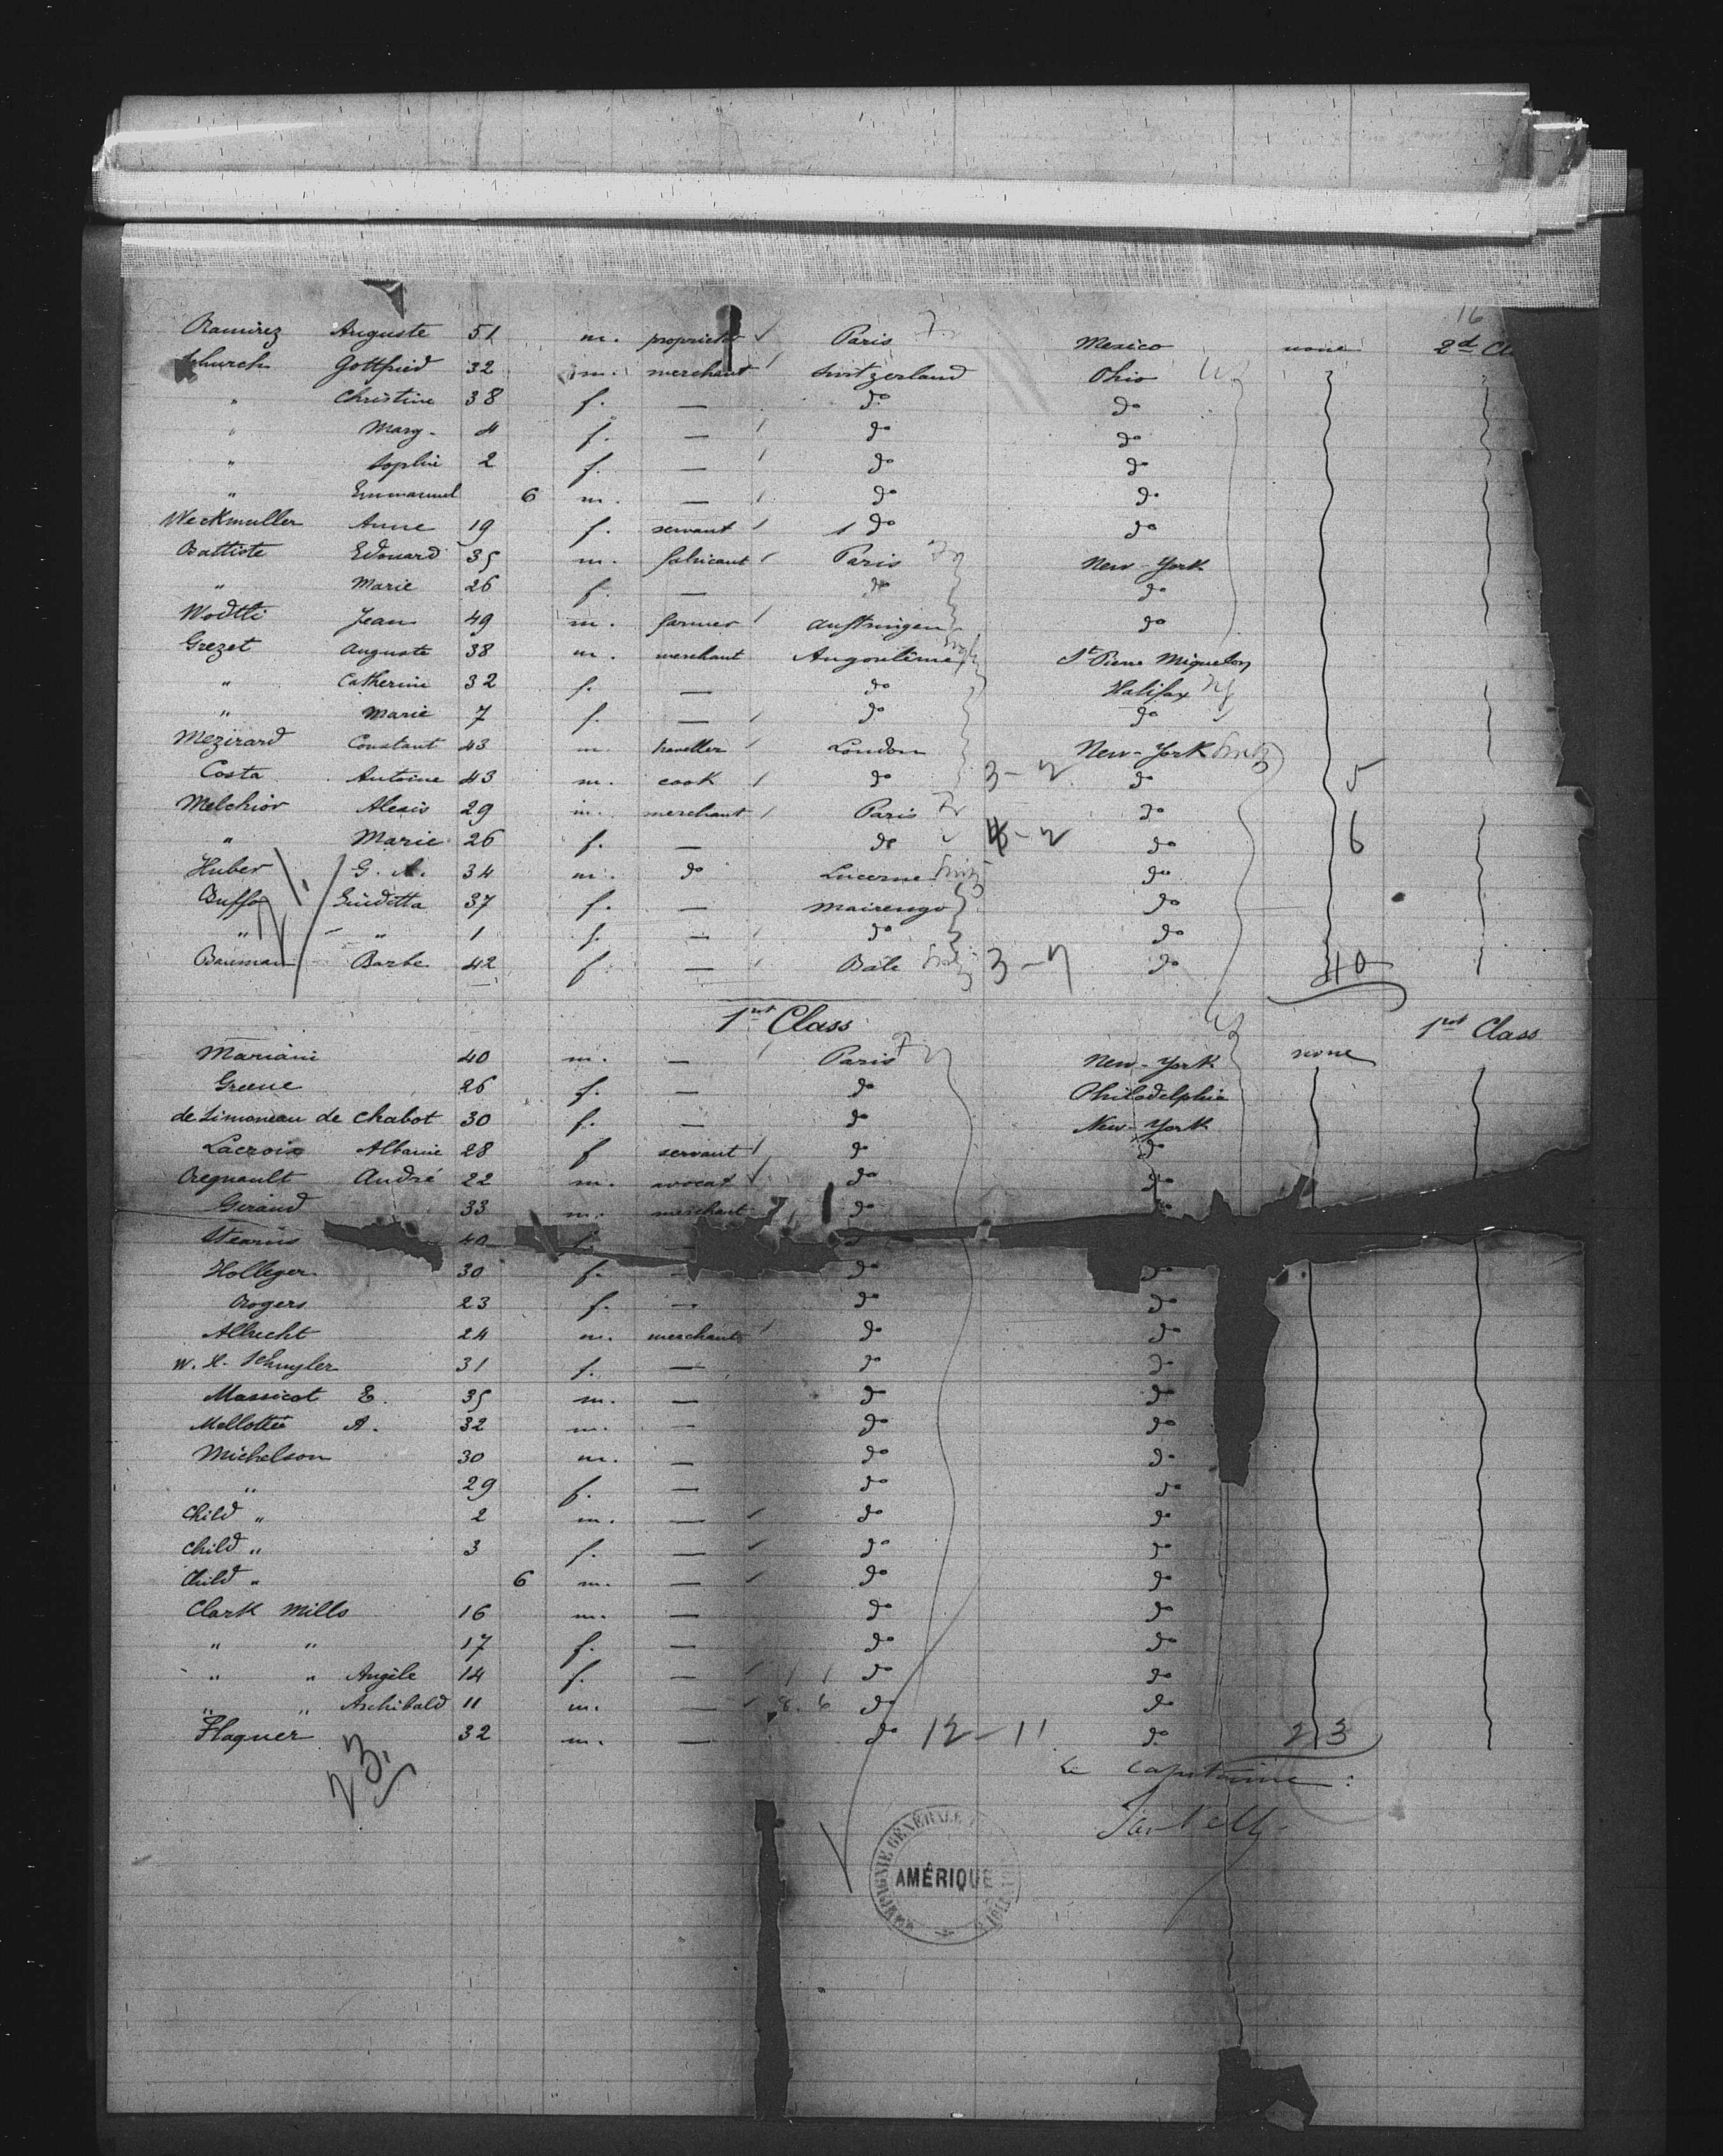 16
Ramirez Auguste 51 m. proprietor Paris F. Mexico none 2d Cl
Schurch Gottfried 32 m. merchant Switzerland Ohio
" Christine 38 f. — do do
" Marg. 4 f. — do do
" Sophie 2 f. — do do
" Emmanuel 6 m. — do do
Weckmuller Anne 19 f. servant do do
Battiste Edouard 35 m. fabricant Paris New-York
" Marie 26 f. — do do
Wodtli Jean 49 m. farmer do
Grezet Auguste 38 m. merchant Angoulême St Pierre Miquelon
" Catherine 32 f. — do Halifax
" Marie 7 f. — do do
Mezirard Constant 43 m. traveller London New-York
Costa Antoine 43 m. cook do 3-2 do 5
Melchior Alexis 29 m. merchant Paris do
" Marie 26 f. — do 4-2 do 6
Huber G. A. 34 m. do Lucerne do
Buffo Giuditta 37 f. — Mairengo do
" " 1 f. — do do
Bauman Barbe 42 f — Bâle 3-7 do 40
1rst Class 1rst Class
Mariani 40 m. — Paris New-York none
Greene 26 f. — do Philadelphia
de Limoneau de Chabot 30 f. — do New-York
Lacroix Albanie 28 f servant do do
Regnault André 22 m. avocat do do
Giraud 33 m. merchant do do
Stearns 40 f.
Holleger 30 f. — do do
Rogers 23 f. — do do
Albrecht 24 m. merchant do do
W. H. Schuyler 31 f. — do do
Massicot E. 35 m. — do do
Mellottée A. 32 m. — do do
Michelson 30 m. — do do
" 29 f. — do do
Child " 2 m. — do do
Child " 3 f. — do do
Child " 6 m. — do do
Clark Mills 16 m. — do do
" " 17 f. — do do
" " Angèle 14 f. — do do
" " Archibald 11 m. — 8. 6 do do
Flaquer 32 m. — do 12-11 do 23
23
Le Capitaine:
COMPAGNIE GÉNÉRALE
AMÉRIQUE